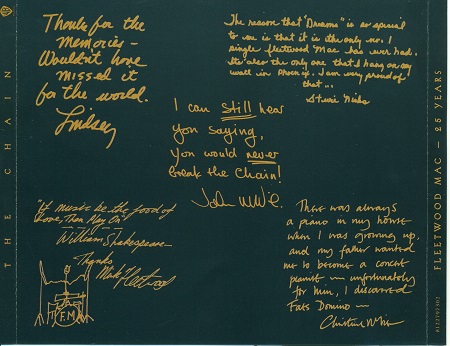 THE CHAIN
Thanks for the
memories -
Wouldn't have
missed it
for the world.
Lindsey
The reason that "Dreams" is so special
to us is that it is the only no. 1
single fleetwood Mac has ever had.
It's also the only one that I hang on my
wall in Phoenix. I am very proud of
that...
Stevie Nicks
I can still hear
you saying,
You would never
break the Chain!
John McVie
"If music be the food of
love, Then Play On"
William Shakespeare
Thanks
Mick Fleetwood
F.M
There was always
a piano in my house
when I was growing up,
and my father wanted
me to become a concert
pianist — unfortunately
for him, I discovered
Fats Domino —
Christine McVie
FLEETWOOD MAC — 25 YEARS